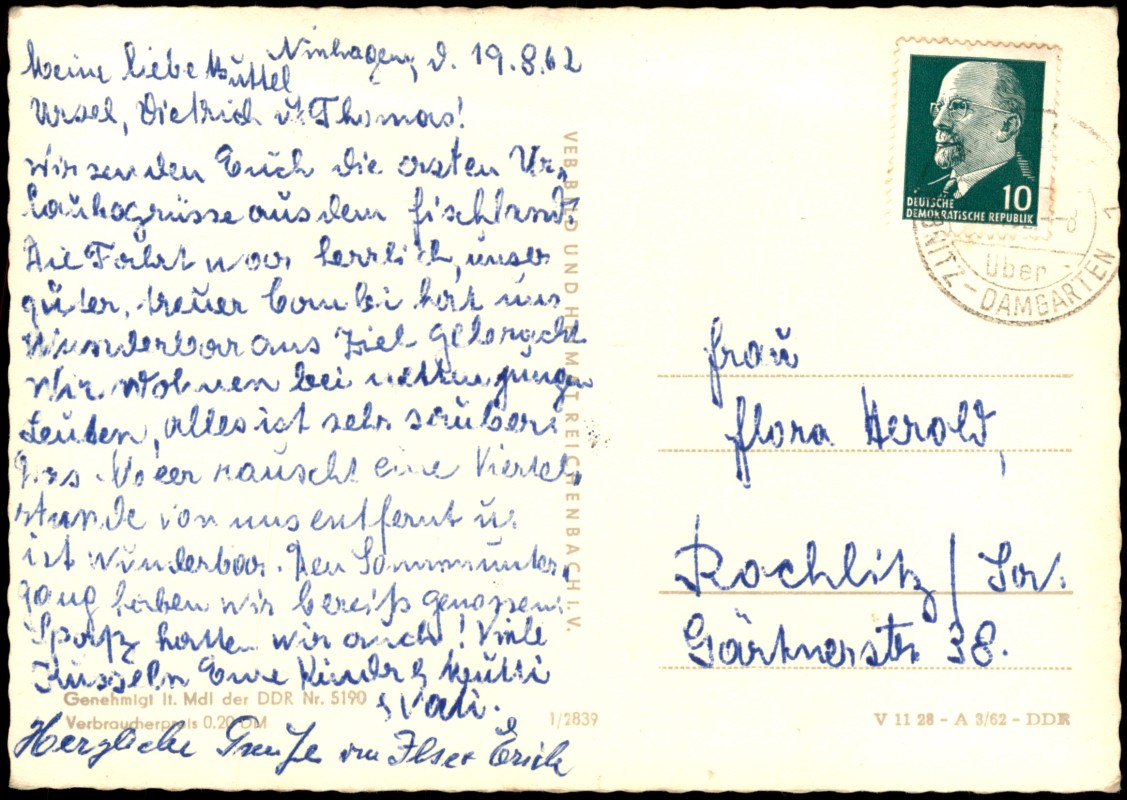 Ninhagen, d. 19.8.62
Meine liebe Muttel
Ursel, Dietrich u. Thomas!
Wir senden Euch die ersten Ur-
laubsgrüsse aus dem Fischland.
Die Fahrt war herrlich, unser
guter, treuer Combi hat uns
Wunderbar ans Ziel gebracht
Wir wohnen bei netten jungen
Leuten, alles ist sehr sauber.
Das Meer rauscht eine Viertel-
stunde von uns entfernt u.
ist wunderbar. Den Sonnunter-
gang haben wir bereits genossen.
Spatz hatten wir auch! Viele
Küsseln Eure Kinder Mutti
& Vati.
Herzliche Grüße von Ilse & Erich
VEB BILD UND HEIMAT REICHENBACH I. V.
Genehmigt lt. MdI der DDR Nr. 5190
Verbraucherpreis 0.20 DM
1/2839
V 11 28 - A 3/62 - DDR
DEUTSCHE
DEMOKRATISCHE REPUBLIK
10
über
BNITZ - DAMGARTEN 1
Frau
Flora Herold,
Rochlitz / Sa.
Gärtnerstr. 38.